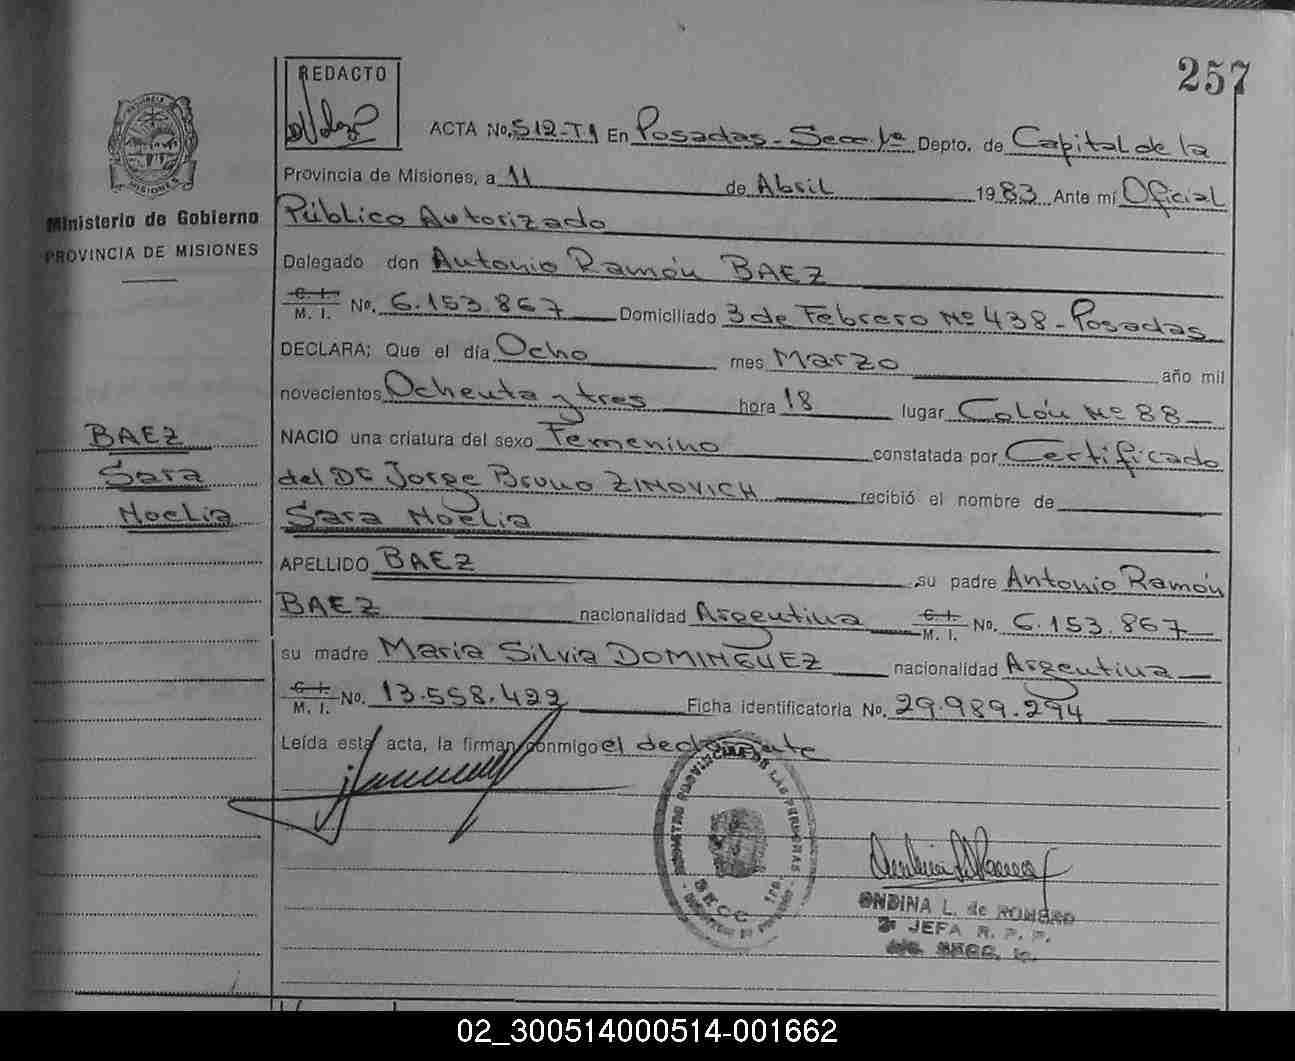 257
REDACTO
ACTA No. 512-T1 En Posadas - Secc 1ª Depto. de Capital de la
Provincia de Misiones, a 11 de Abril 1983 Ante mí Oficial
Público Autorizado
Delegado don Antonio Ramón BAEZ
C. I.
M. I. No. 6.153.867 Domiciliado 3 de Febrero Nº 438 - Posadas
DECLARA; Que el día Ocho mes Marzo año mil
novecientos Ochenta y tres hora 18 lugar Colón Nº 88
NACIO una criatura del sexo Femenino constatada por Certificado
del Dr Jorge Bruno ZINOVICH recibió el nombre de
Sara Noelia
APELLIDO BAEZ su padre Antonio Ramón
BAEZ nacionalidad Argentina C. I. M. I. No. 6.153.867
su madre Maria Silvia DOMINGUEZ nacionalidad Argentina
C. I.
M. I. No. 13.558.422 Ficha identificatoria No. 29.989.294
Leída esta acta, la firman conmigo el declarante
PROVINCIA DE
MISIONES
Ministerio de Gobierno
PROVINCIA DE MISIONES
BAEZ
Sara
Noelia
REGISTRO PROVINCIAL DE LAS PERSONAS
SECC. 1ra.
ONDINA L. de ROMERO
2ª JEFA R. P. P.
SECC. 1a.
02_300514000514-001662